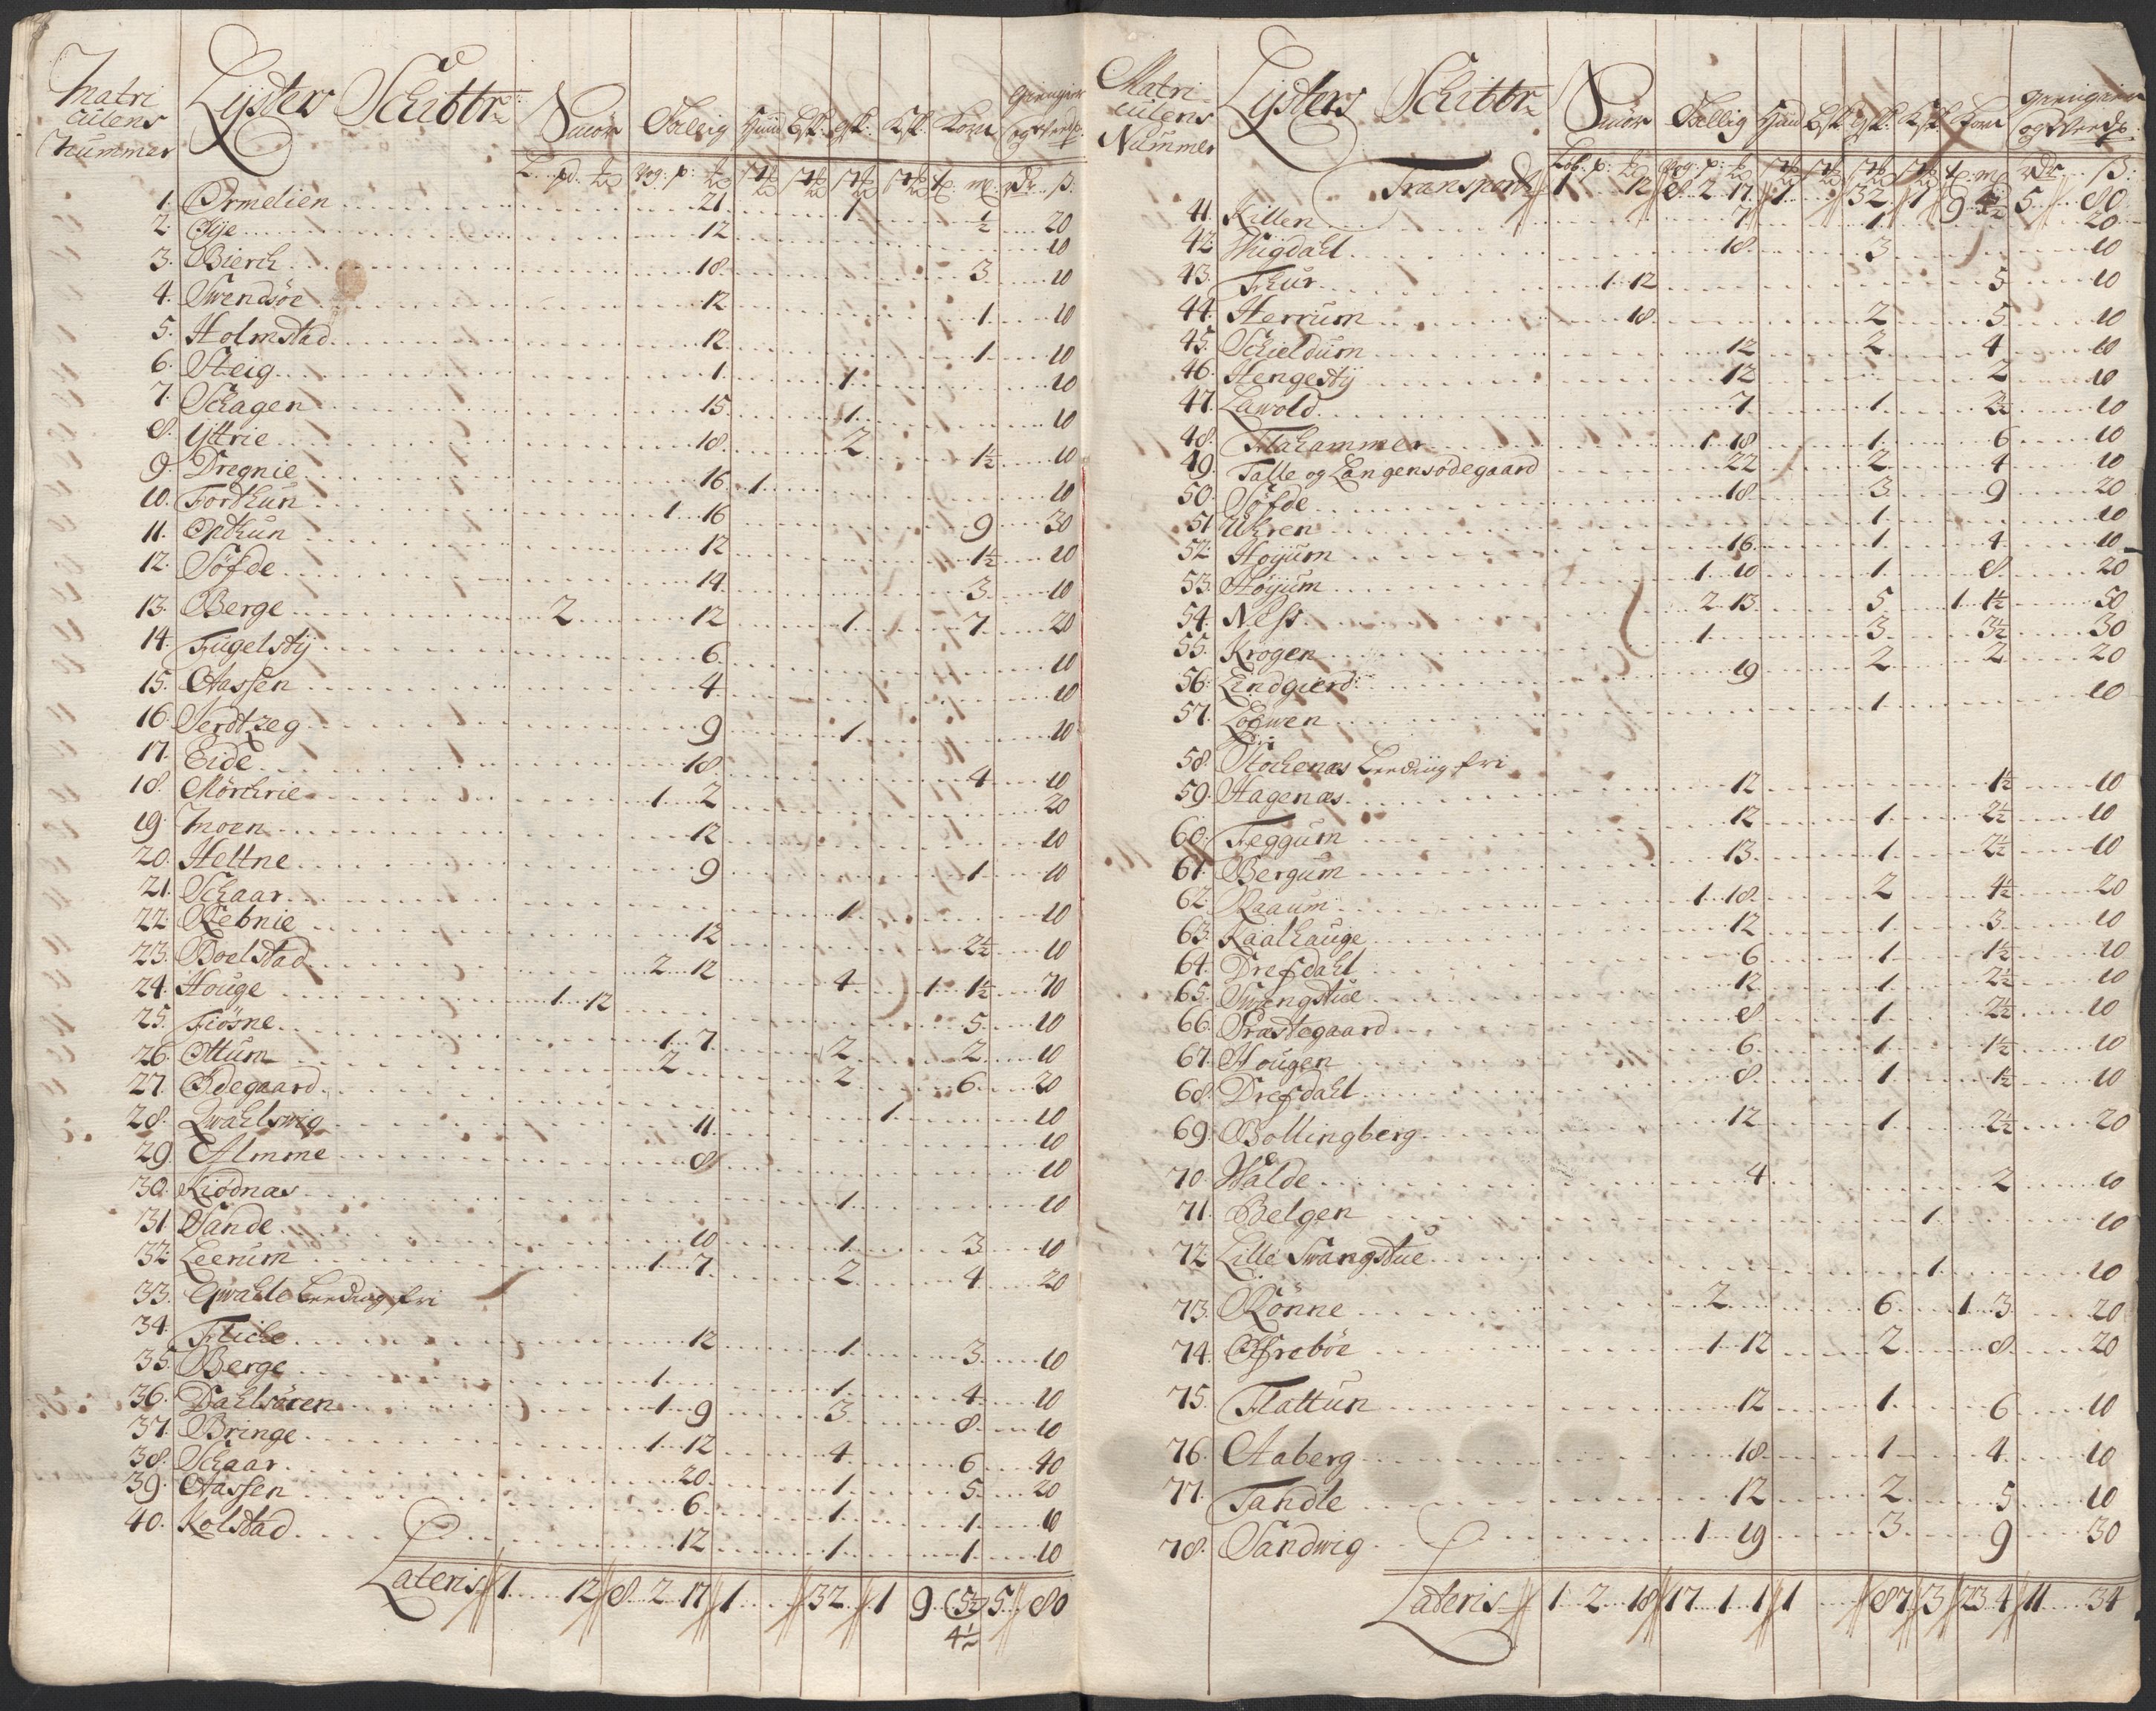 Matri
culens
Nummer
Lysters Schibbr
Smör Talling Huud Bsk: Gsk: Ksk: Korn Giengierd og Wredsp:
L. pd. Vog: p: mel rdr ß:
1. Ormelien 21 1 ½ 20
2 Øye 12 10
3. Bierch 18 3 10
4. Swendsöe 12 1 10
5. Holmstad 12 1 10
6. Steig 1 1 10
7. Schagen 15 1 10
8. Yttrie 18 2 1½ 10
9 Dregnie 16 1 10
10. Fordhun 1 16 9 30
11. Opthun 12 1½ 10
12. Söfde 14 3 10
13. Berge 2 12 1 7 20
14. Fugelstij 6 10
15. Aassen 4 10
16. Jerdtzeg 9 1 10
17. Eide 18 4 10
18. Mörchrie 1 2 20
19 Moen 12 10
20. Heltne 9 1 10
21. Schaar 1 10
22. Rebnie 12 2½ 10
23. Boelstad 2 12 4 1 1½ 70
24. Houge 1 12 5 10
25. Fiösne 1 7 2 2 10
26. Ottum 2 2 6 20
27. Ödegaard 1 10
28. Qwahlswig 11 10
29. Almme 8 10
30. Kiödnas 1 10
31 Sande 10 1 3 10
32. Leerum 1 7 2 4 20
33. Qwahle Leeding fri
34. Fliche 12 1 3 10
35. Berge 1 1 4 10
36. Dahlsören 1 9 3 8 10
37. Bringe 1 12 4 6 40
38. Schaar 20 1 5 20
39. Aassen 6 1 1 10
40. Kolstad 12 1 1 10
Lateris 1 12 8 2 17 1 32 1 9 (5½) 5 80
4½
Matri
culens
Nummer
Lysters Schibbr
Smör Tallig Huud Bsk: Gsk: Ksk: Korn Giengierd og Wredsp.
Lob. p: Vog: p: rdr ß:
Transport 1 12 8 2 17 1 32 1 9 4½ 5 80
41. Killen 7 1 20
42. Wigdahl 18 3 10
43. Fhur 1 12 5 10
44. Herrum 18 2 5 10
45. Schieldum 12 2 4 10
46. Hengestij 12 2 10
47. Lawold 7 1 2½ 10
48. Flahammer 1 18 1 6 10
49. Talle og Langensødegaard 22 2 4 10
50. Söfde 18 3 9 20
51 Uhren 1 10
52. Hoyum 16 1 4 10
53. Höyum 1 10 1 8 20
54. Ness 2 13 5 1 1½ 50
55. Krogen 1 3 3½ 30
56. Lindgierd 19 2 2 20
57. Loewen 1 10
58. Stochenæs Leeding fri
59. Hagenæs 12 1½ 10
60. Feggum 12 1 2½ 10
61. Bergum 13 1 2½ 10
62. Raaum 1 18 2 4½ 20
63. Kaalhauge 12 1 3 10
64. Drefdahl 6 1 1½ 10
65. Swangstue 12 1 2½ 10
66. Præstegaard 8 1 2½ 10
67. Hougen 6 1 1½ 10
68. Drefdahl 8 1 1½ 10
69. Bollingberg 12 1 2½ 20
70. Walde 4 2 10
71. Belgen 1 10
72. Lille Swangstue 1 10
73. Rönne 2 6 1 3 20
74. Ofreböe 1 12 2 8 20
75. Flattun 12 1 6 10
76. Aaberg 18 1 4 10
77. Tandle 12 2 5 10
78. Sandwig 1 19 3 9 30
Lateris 1 2 18 17 1 1 1 87 3 23 4 11 34